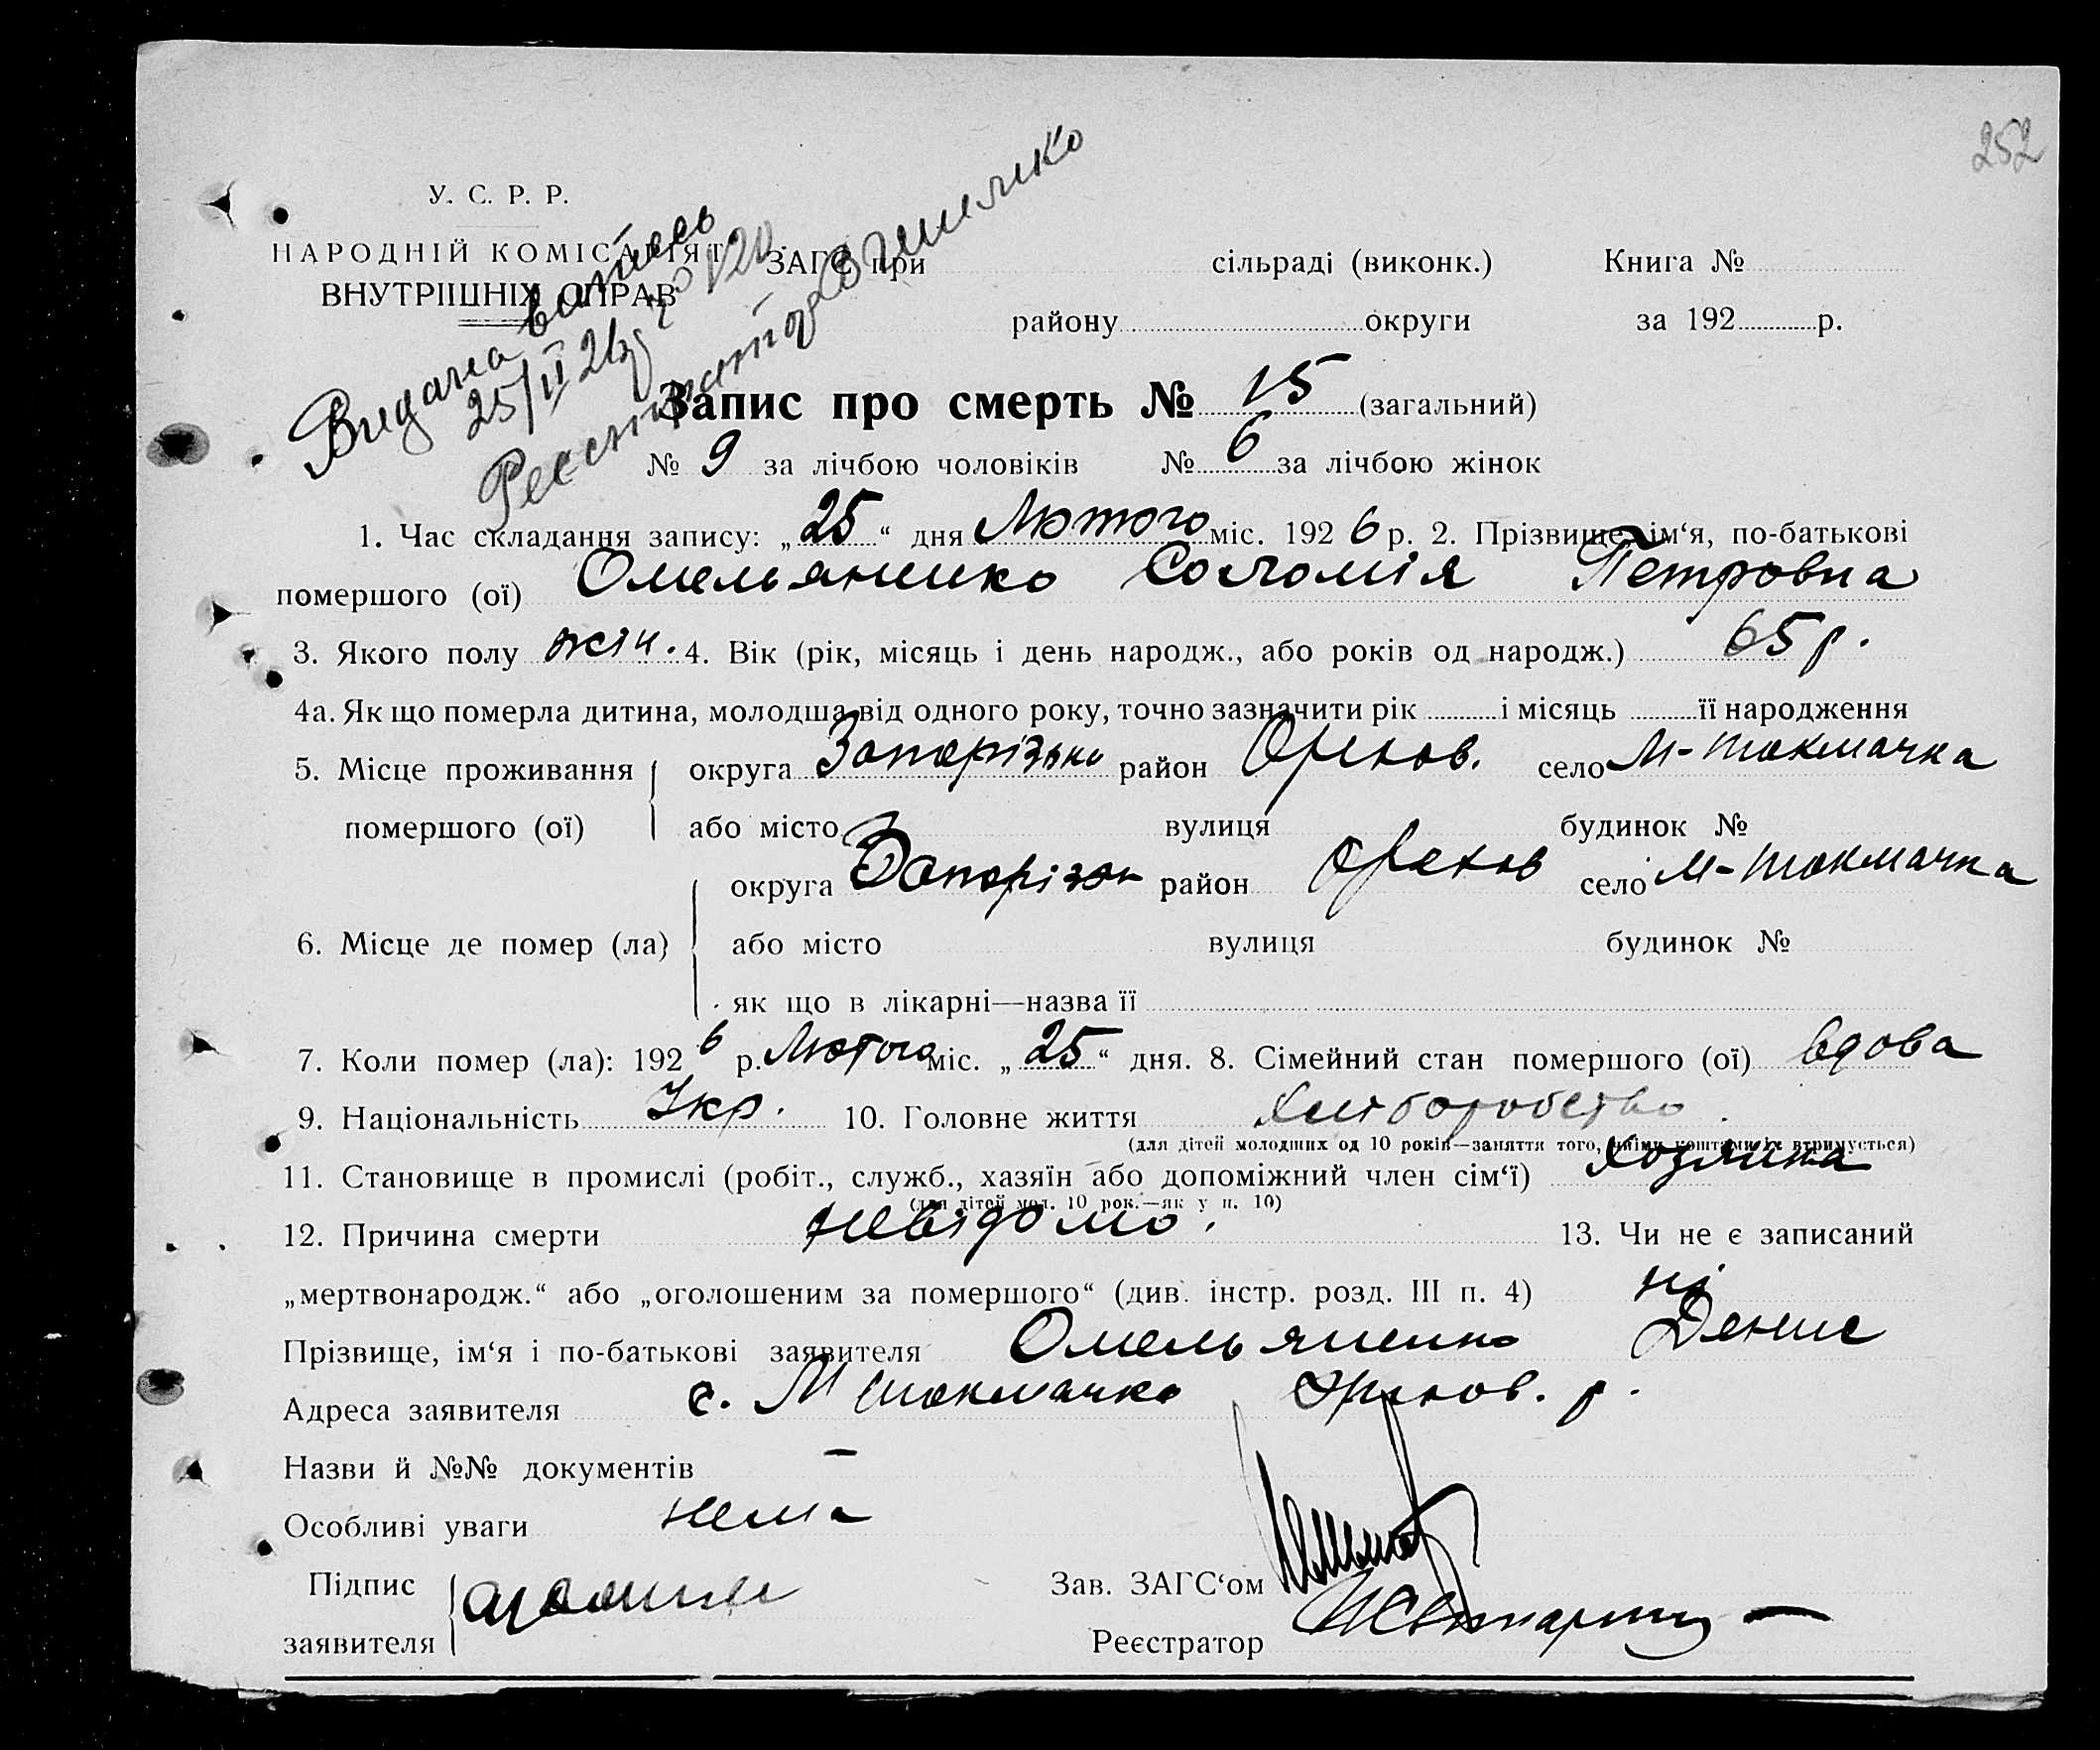 252
У. С. Р. Р.
НАРОДНІЙ КОМІСАРІЯТ
ВНУТРІШНІХ СПРАВ
Видана выпись
25/II 26
Реєстратор
ЗАГС при сільраді (виконк.) Книга №
району округи за 192 р.
Запис про смерть № 15 (загальний)
№ 9 за лічбою чоловіків № 6 за лічбою жінок
1. Час складання запису: „25“ дня Лютого міс. 1926 р. 2. Прізвище, ім‘я, по-батькові
помершого (ої) Омельяненко Соломія Петровна
3. Якого полу жін. 4. Вік (рік, місяць і день народж., або років од народж.) 65 р.
4а. Як що померла дитина, молодша від одного року, точно зазначити рік і місяць її народження
5. Місце проживання округа Запорізька район Орехов. село М-Токмачка
помершого (ої) або місто вулиця будинок №
округа Запорізьк район Орехов село М-Токмачка
6. Місце де помер (ла) або місто вулиця будинок №
як що в лікарні—назва її
7. Коли помер (ла): 1926 р. Лютого міс. „25“ дня. 8. Сімейний стан помершого (ої) вдова
9. Національність Укр. 10. Головне життя хліборобство.
(для дітей молодших од 10 років—заняття того, чиїми коштами їх втримується)
11. Становище в промислі (робіт., служб., хазяїн або допоміжний член сім‘ї) хозяйка
(для дітей мол. 10 рок.—як у п. 10)
12. Причина смерти невідомо. 13. Чи не є записаний
„мертвонародж.“ або „оголошеним за помершого“ (див. інстр. розд. III п. 4) ні
Прізвище, ім‘я і по-батькові заявителя Омельяненко Денис
Адреса заявителя с. М Токмачка Орехов. р.
Назви й №№ документів —
Особливі уваги нема
Підпис Зав. ЗАГС‘ом
заявителя Реєстратор